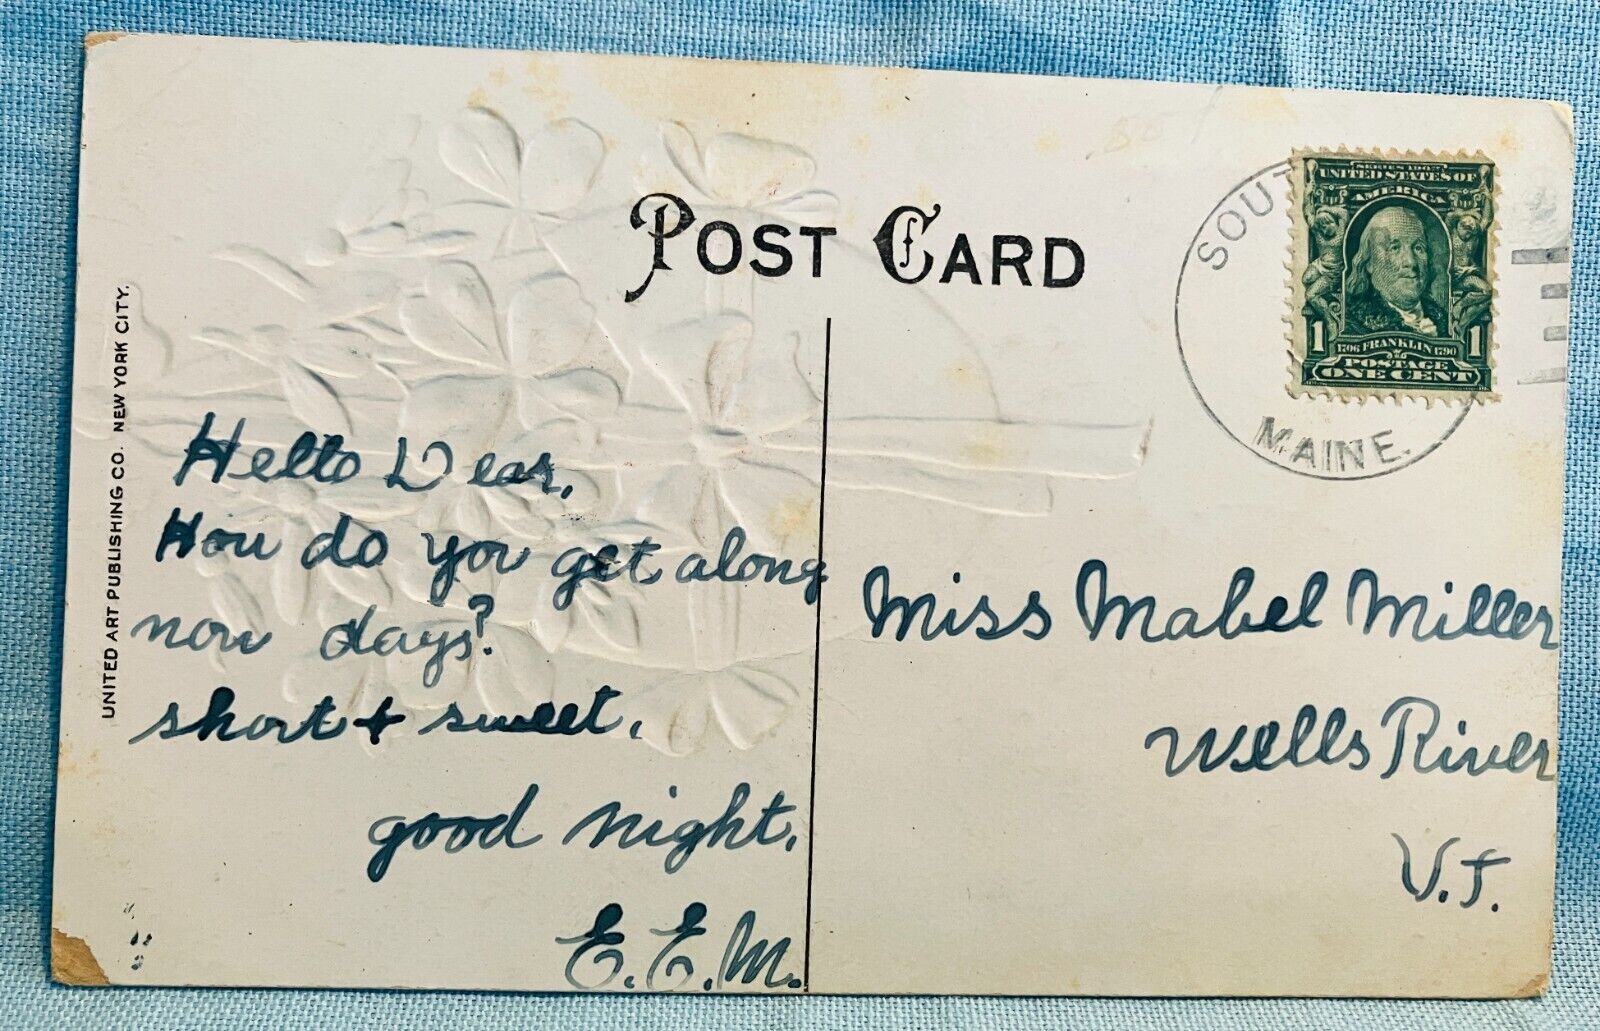 POST CARD
SOUT
MAINE.
SERIES 1902
UNITED STATES OF
AMERICA
1 1
1706 FRANKLIN 1790
POSTAGE
ONE CENT
UNITED ART PUBLISHING CO. NEW YORK CITY.
Hello Dear.
How do you get along
now days?
short + sweet.
good night.
E.E.M.
Miss Mabel Miller
Wells River
V.T.